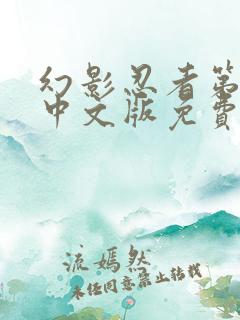 幻影忍者第
中文版免费
流嫣然
未经同意禁止转载